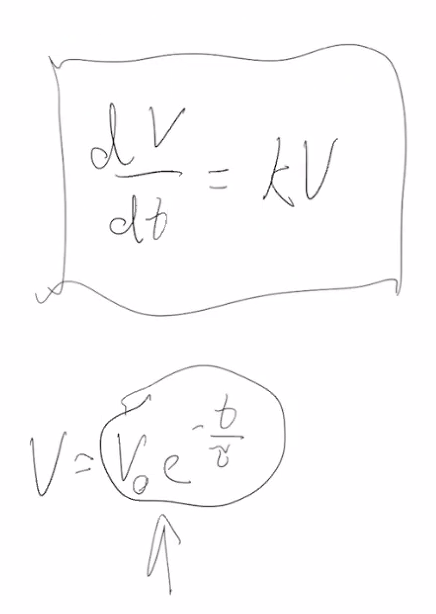 dV/dt = kV
V = V₀ e^(-t/τ)